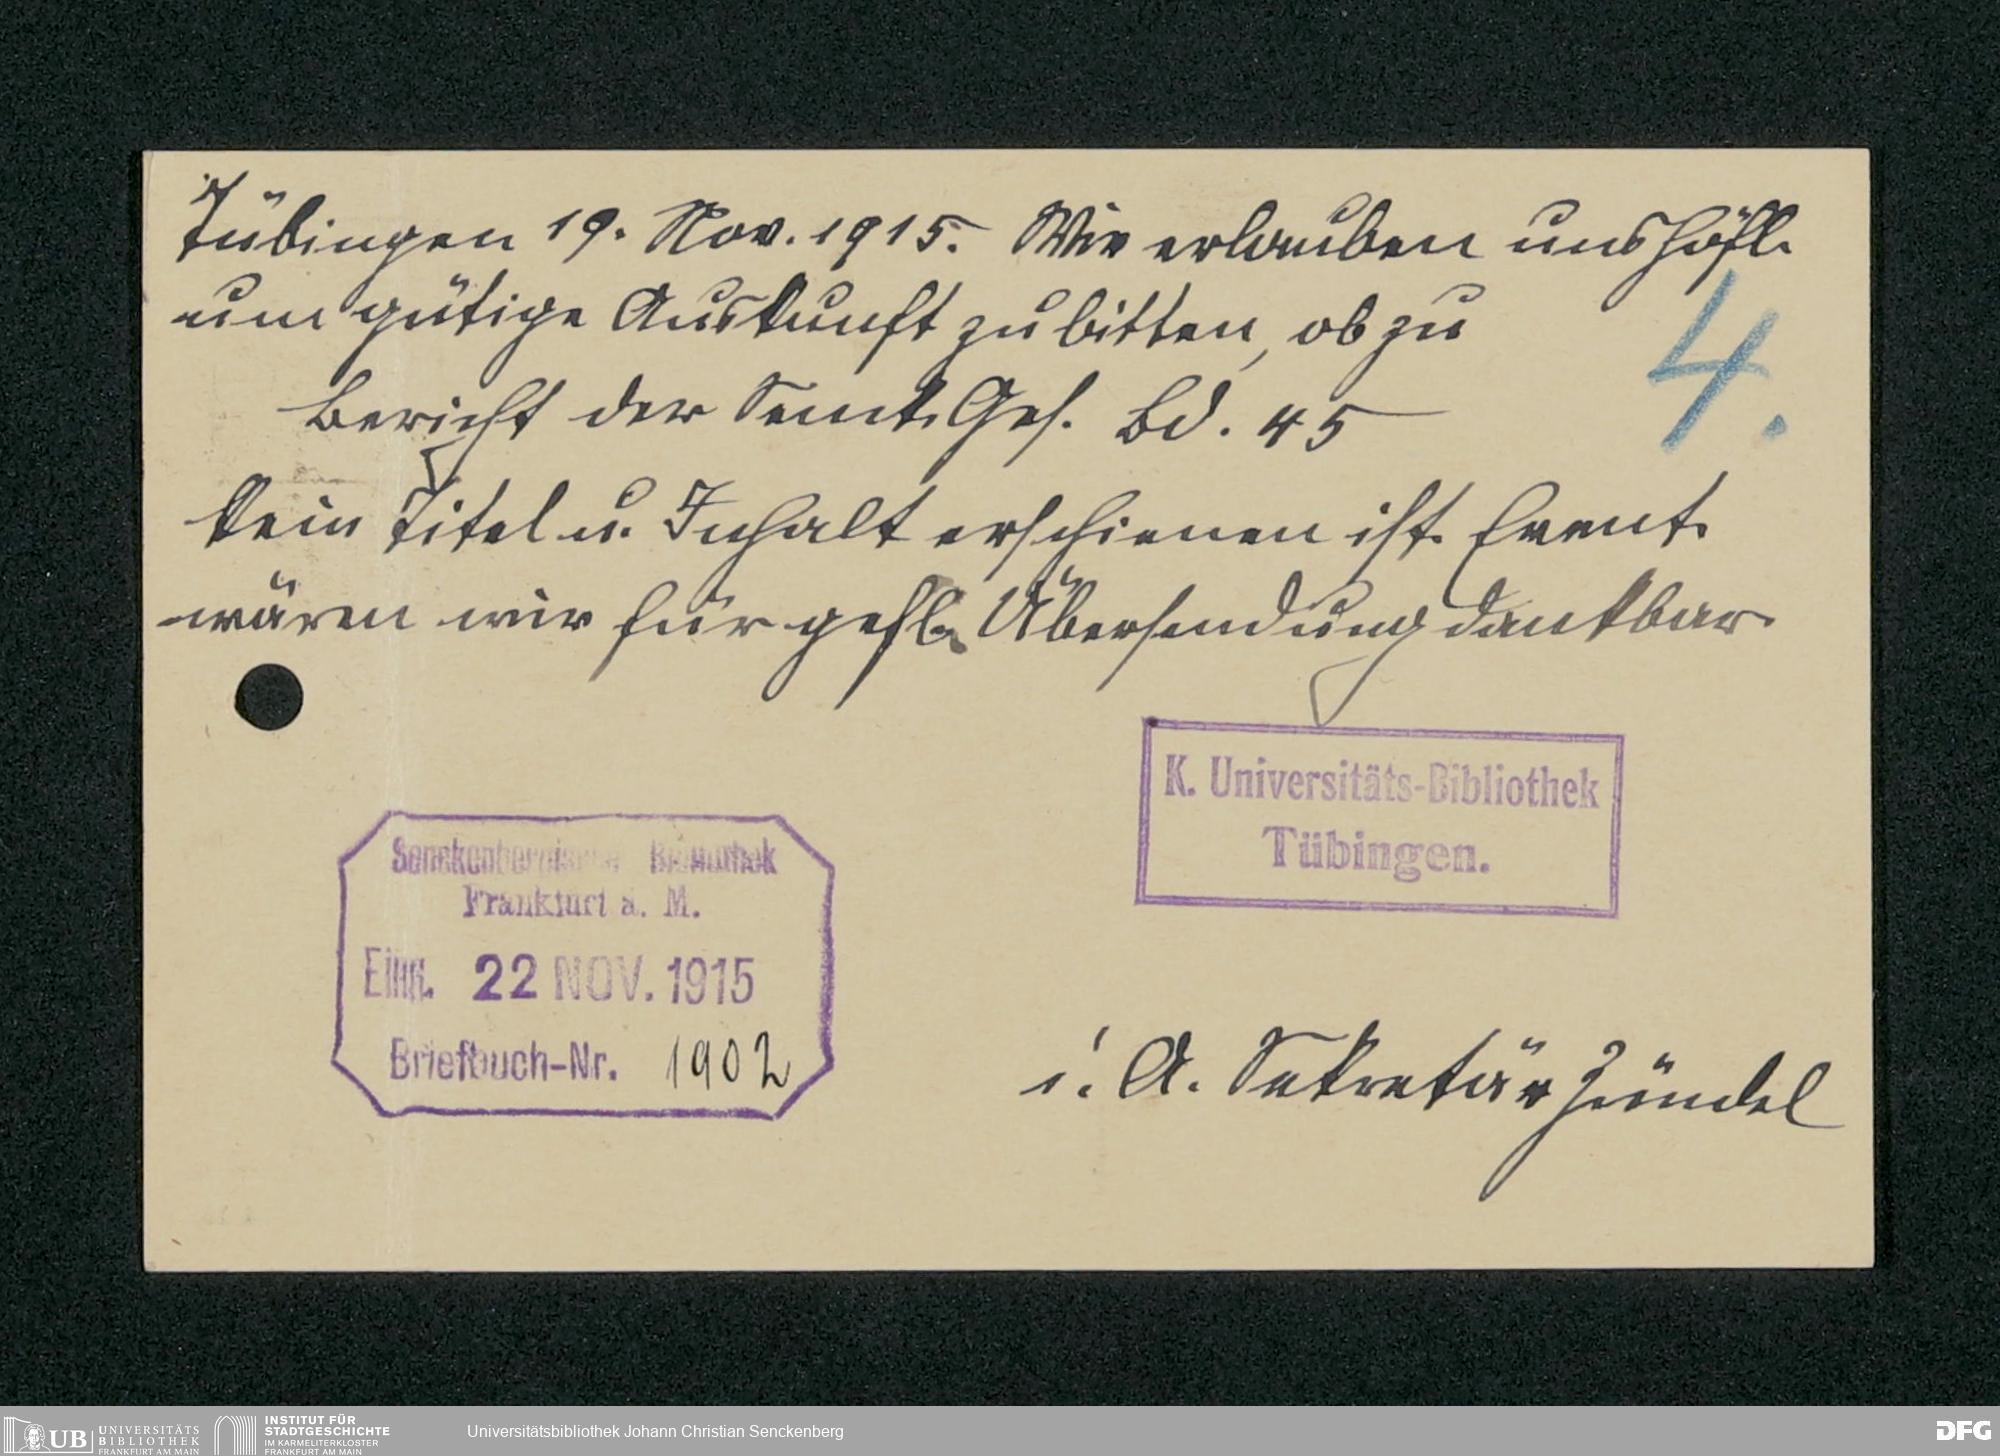 Tübingen 19. Nov. 1915. Wir erlauben uns höfl.
um gütige Auskunft zu bitten, ob zu
Bericht der Senck. Ges. Bd. 45
kein Titel u. Inhalt erschienen ist. Event.
wären wir für gefl. Übersendung dankbar
4.
K. Universitäts-Bibliothek
Tübingen.
Senckenbergische Bibliothek
Frankfurt a. M.
Eing. 22 NOV. 1915
Briefbuch-Nr. 1902
i. A. Sekretär Zündel
UB UNIVERSITÄTS
BIBLIOTHEK
FRANKFURT AM MAIN
INSTITUT FÜR
STADTGESCHICHTE
IM KARMELITERKLOSTER
FRANKFURT AM MAIN
Universitätsbibliothek Johann Christian Senckenberg
DFG